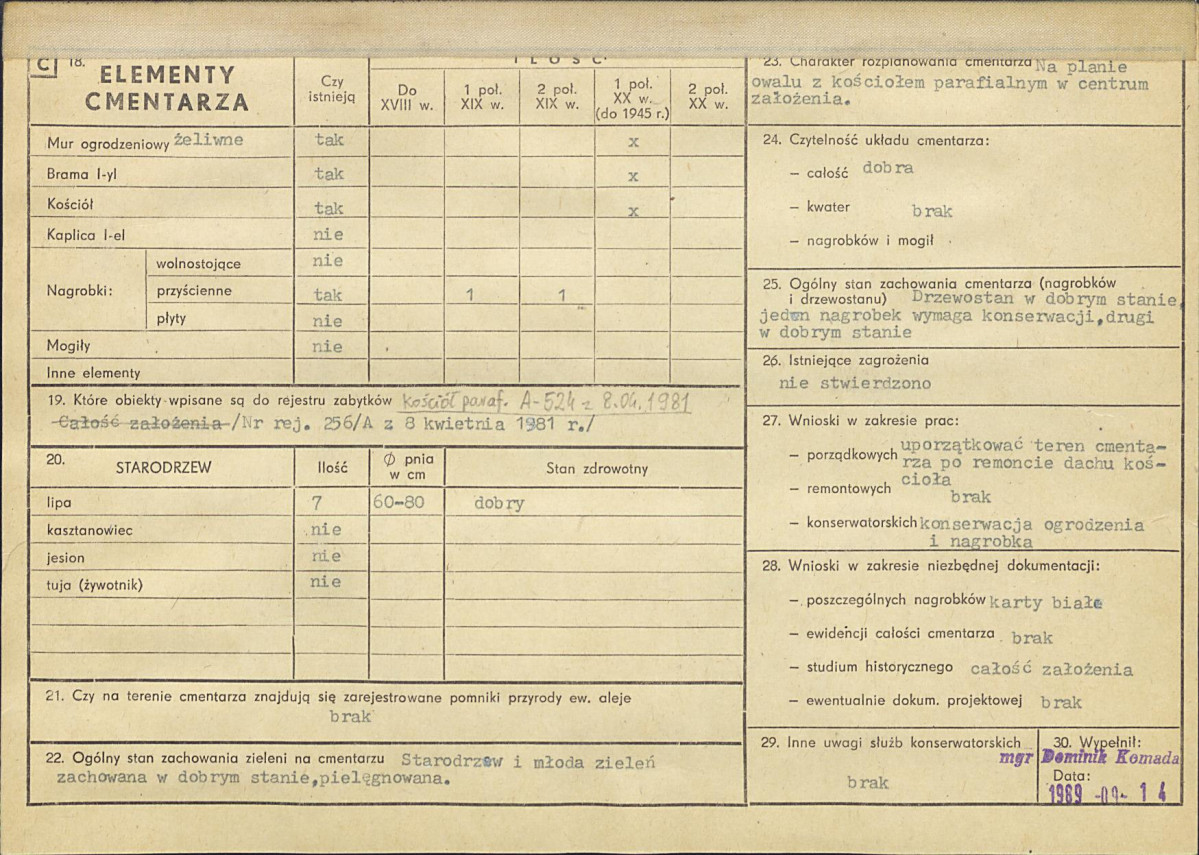 C 18. ELEMENTY CMENTARZA
Czy istnieją
I L O Ś Ć
Do XVIII w.
1 poł. XIX w.
2 poł. XIX w.
1 poł. XX w. (do 1945 r.)
2 poł. XX w.
Mur ogrodzeniowy żeliwne tak x
Brama I-yl tak x
Kościół tak x
Kaplica I-el nie
Nagrobki: wolnostojące nie
przyścienne tak 1 1
płyty nie
Mogiły nie
Inne elementy
19. Które obiekty wpisane są do rejestru zabytków kościół paraf. A-524 z 8.04.1981
Całość założenia /Nr rej. 256/A z 8 kwietnia 1981 r./
20. STARODRZEW Ilość Ø pnia w cm Stan zdrowotny
lipa 7 60-80 dobry
kasztanowiec nie
jesion nie
tuja (żywotnik) nie
21. Czy na terenie cmentarza znajdują się zarejestrowane pomniki przyrody ew. aleje
brak
22. Ogólny stan zachowania zieleni na cmentarzu Starodrzew i młoda zieleń
zachowana w dobrym stanie,pielęgnowana.
23. Charakter rozplanowania cmentarza Na planie
owalu z kościołem parafialnym w centrum
założenia.
24. Czytelność układu cmentarza:
– całość dobra
– kwater brak
– nagrobków i mogił
25. Ogólny stan zachowania cmentarza (nagrobków
i drzewostanu) Drzewostan w dobrym stanie,
jeden nagrobek wymaga konserwacji,drugi
w dobrym stanie
26. Istniejące zagrożenia
nie stwierdzono
27. Wnioski w zakresie prac:
– porządkowych uporzątkować teren cmenta-
rza po remoncie dachu koś-
cioła
– remontowych brak
– konserwatorskich konserwacja ogrodzenia
i nagrobka
28. Wnioski w zakresie niezbędnej dokumentacji:
– poszczególnych nagrobków karty białe
– ewidencji całości cmentarza brak
– studium historycznego całość założenia
– ewentualnie dokum. projektowej brak
29. Inne uwagi służb konserwatorskich
brak
30. Wypełnił:
mgr Dominik Komada
Data:
1989 -09- 14